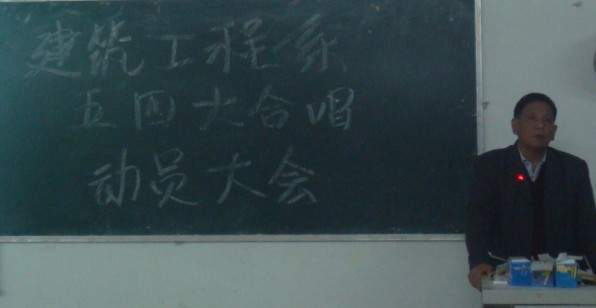 建筑工程系
五四大合唱
动员大会